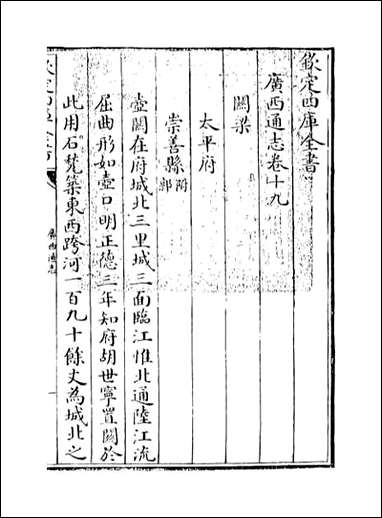 欽定四庫全書
廣西通志卷十九
關梁
太平府
崇善縣附郭
壺關在府城北三里城三面臨江惟北通陸江流
屈曲形如壺口明正德三年知府胡世寧置關於
此用石甃築東西跨河一百九十餘丈為城北之
欽定四庫全書
廣西通志
一